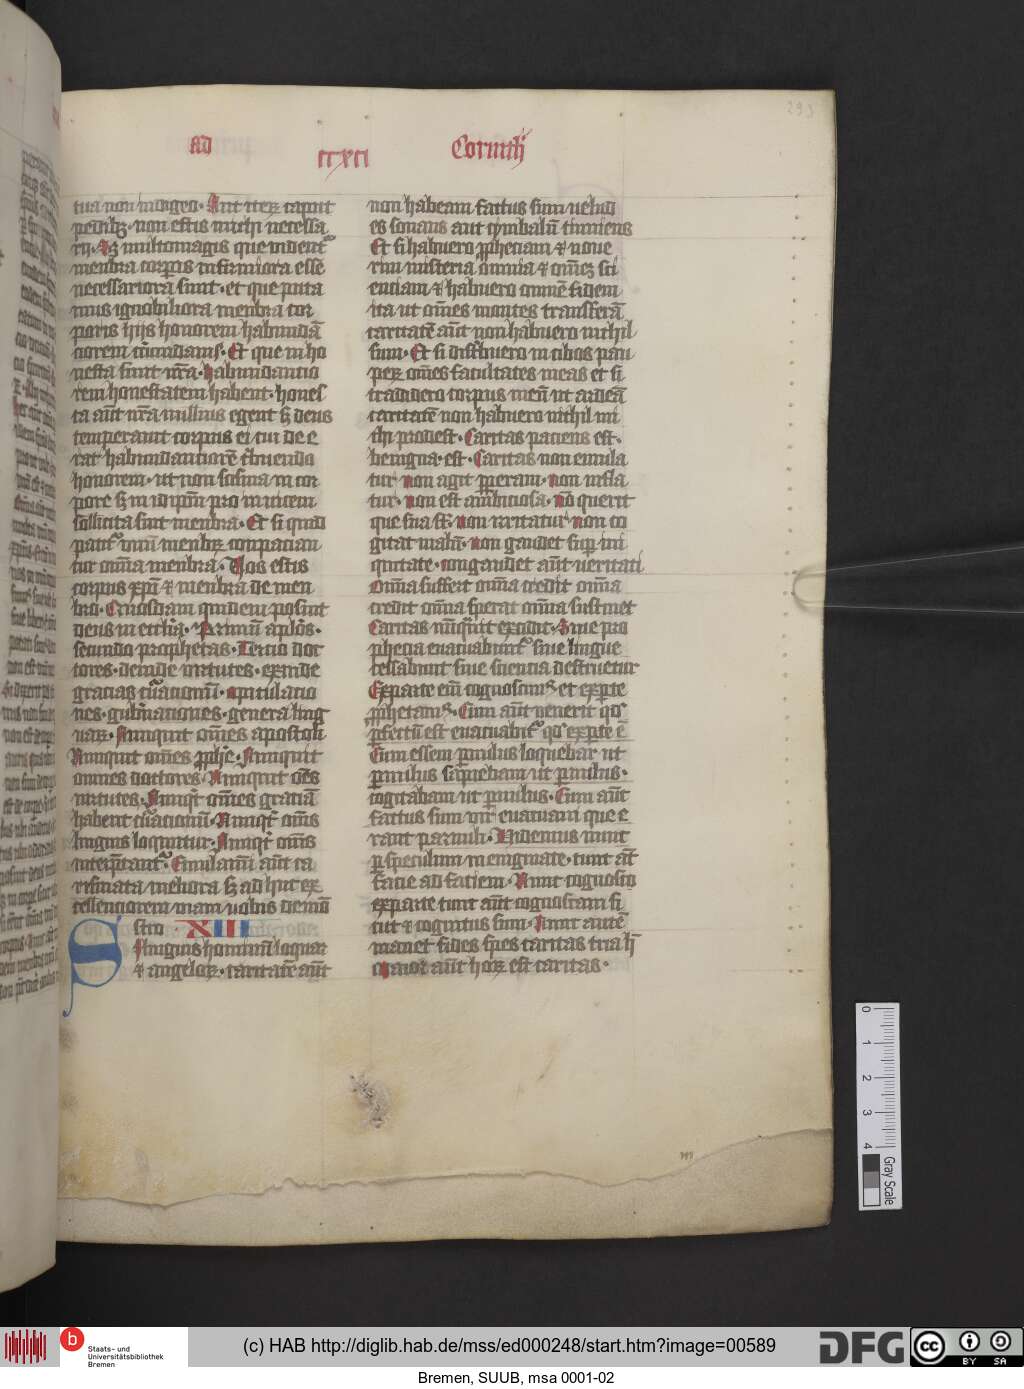 293
ad
ccxci
Corinth
tua non indigeo. Aut iterz caput
pedibz. non estis michi necessa
rij. Sz multomagis que uident
menbra corporis infirmiora esse
necessariora sunt. et que puta
mus ignobiliora menbra cor
poris hijs honorem habundā
ciorem cicumdams. Et que inho
nesta sunt nr̄a. habundantio
rem honestatem habent. hones
ta aūt nr̄a nullius egent sz deus
temperauit corpus ei cui de e
rat habundanciorē tbuendo
honorem. ut non scisma in cor
pore sz in idip̄m pro inuicem
sollicita sint menbra. Et si quid
patit̄ unū menbrz conpacian
tur omīa menbra. Uos estis
corpus xp̄i et menbra de men
bro. Quosdam quidem posuit
deus in ecc̄lia. Primū apl̄os.
secundo prophetas. Tercio doc
tores. deinde uirtutes. exinde
gracias curacionū. opitulacio
nes. gubnaciones. genera ling
uarz. Nunquit om̄es apostoli
Nunquit om̄es pphe. Nunquit
omnes doctores. Nunquit om̄s
uirtutes. Nunqt om̄es graciā
habent curacionū. Nunqt om̄s
linguis loquntur. Nunqt om̄s
interptant̄. Emulamī aūt ca
rismata meliora sz ad huc ex
cellenciorem uiam uobis demō
stro XIII
SI linguis hominū loquar
et angelorz. caritatē aūt
non habeam factus sum uelud
es sonans aut cymbalū tinniens
Et si habuero ppheciam et noue
rim misteria omnia et om̄ez sci
enciam et habuero omnē fidem
ita ut om̄es montes transferā
caritatē aūt non habuero nichil
sum. Et si distbuero in cibos pau
perz om̄es facultates meas et si
tradidero corpus meū ut ardeā
caritatē non habuero nichil mi
chi prodest. Caritas paciens est.
benigna est. Caritas non emula
tur non agit pperam. non infla
tur. non est ambiciosa. Nō querit
que sua st. non irritatur non co
gitat malū. non gaudet sup ini
quitate. congaudet aūt ueritati
Omīa suffert omīa credit omīa
credit omīa sperat omīa sustinet
Caritas nūqūit excidit. Siue pro
phecia euacuabunt̄ siue lingue
cessabunt siue sciencia destruetur
Exparte enī cognoscims et exp̄te
pphetams. Cum aūt uenerit qd
pfectū est euacuabit̄ qd exp̄te ē
Cum essem puulus loquebar ut
puulus sapiebam ut puulus.
cogitabam ut puulus. Cum aūt
factus sum uir euacuaui que e
rant paruuli. Uidemus nunc
p speculum in enigmate. tunc aūt
facie ad faciem. Nunc cognosco
exparte tunc aūt cognoscam si
cut et cognitus sum. Nunc autē
manet fides spes caritas tria h̄
Maior aūt horz est caritas.
0 1 2 3 4
Gray Scale
b
Staats- und
Universitätsbibliothek
Bremen
(c) HAB http://diglib.hab.de/mss/ed000248/start.htm?image=00589
DFG
cc
BY SA
Bremen, SUUB, msa 0001-02